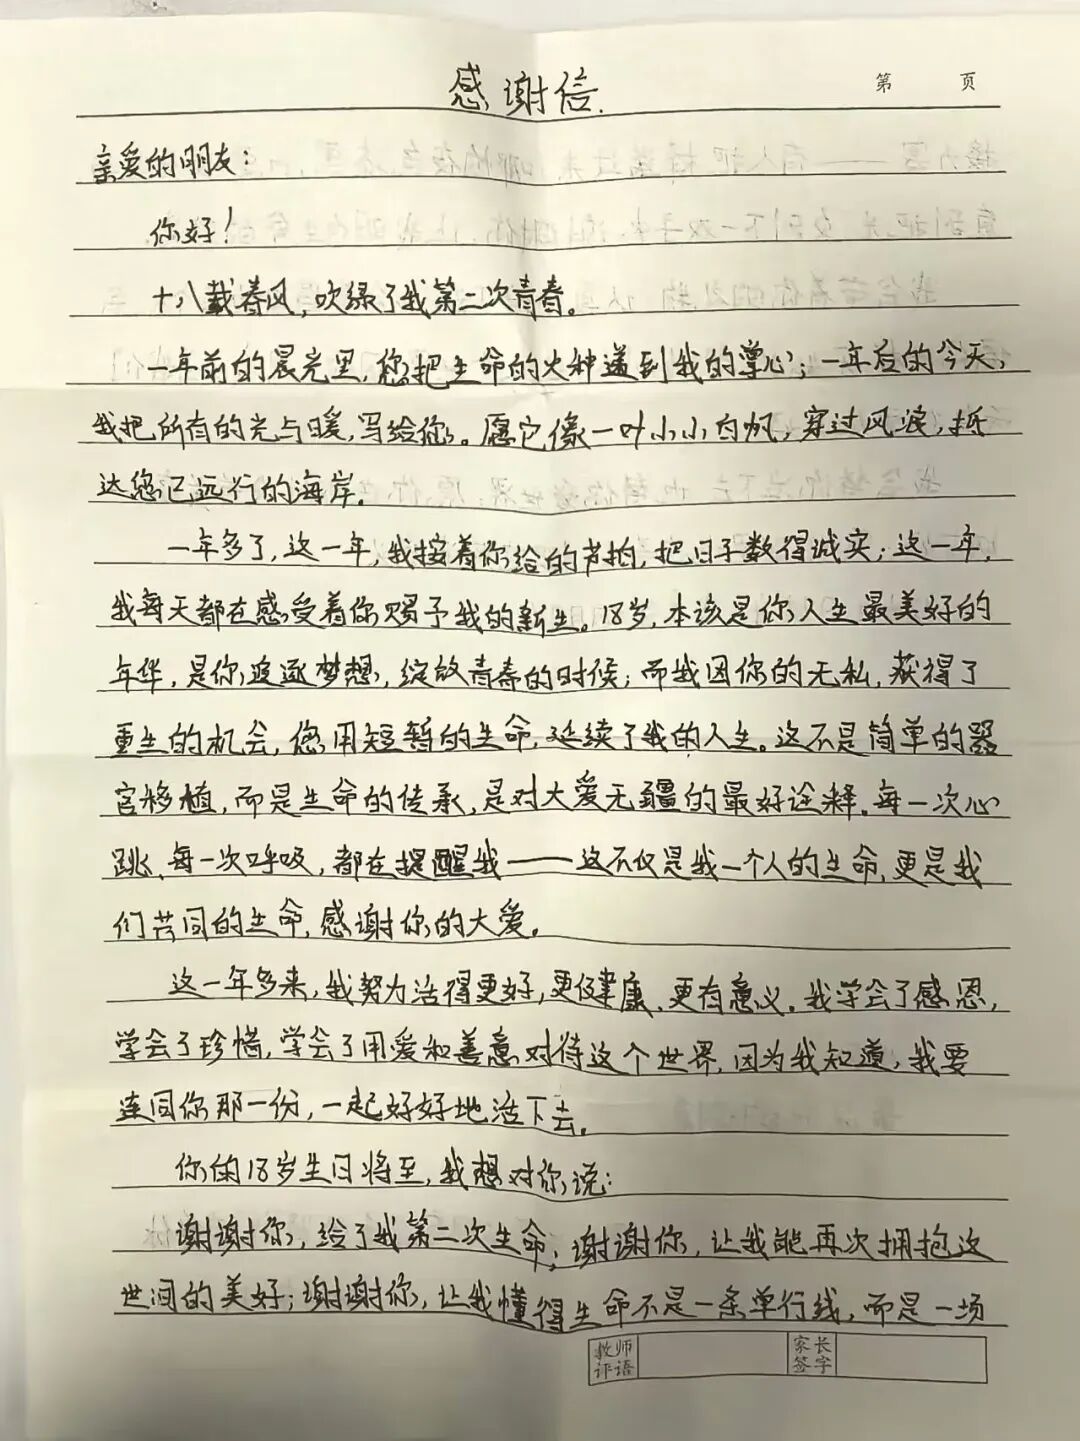 感谢信.
第 页
亲爱的朋友：
你好！
十八载春风，吹绿了我第二次青春。
一年前的晨光里，您把生命的火种递到我的掌心；一年后的今天，
我把所有的光与暖，写给你。愿它像一叶小小白帆，穿过风浪，抵
达您已远行的海岸。
一年多了，这一年，我按着你给的节拍，把日子数得诚实；这一年，
我每天都在感受着你赐予我的新生。18岁，本该是你人生最美好的
年华，是你追逐梦想，绽放青春的时候；而我因你的无私，获得了
重生的机会，您用短暂的生命，延续了我的人生。这不是简单的器
官移植，而是生命的传承，是对大爱无疆的最好诠释。每一次心
跳、每一次呼吸，都在提醒我——这不仅是我一个人的生命，更是我
们共同的生命，感谢你的大爱。
这一年多来，我努力活得更好，更健康，更有意义。我学会了感恩，
学会了珍惜，学会了用爱和善意对待这个世界，因为我知道，我要
连同你那一份，一起好好地活下去。
你的18岁生日将至，我想对你说：
谢谢你，给了我第二次生命；谢谢你，让我能再次拥抱这
世间的美好；谢谢你，让我懂得生命不是一条单行线，而是一场
教师评语 家长签字